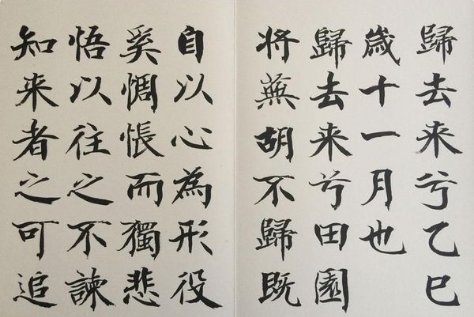 歸去来兮乙巳
歲十一月也
歸去来兮田園
将蕪胡不歸既
自以心為形役
奚惆悵而獨悲
悟以往之不諫
知来者之可追